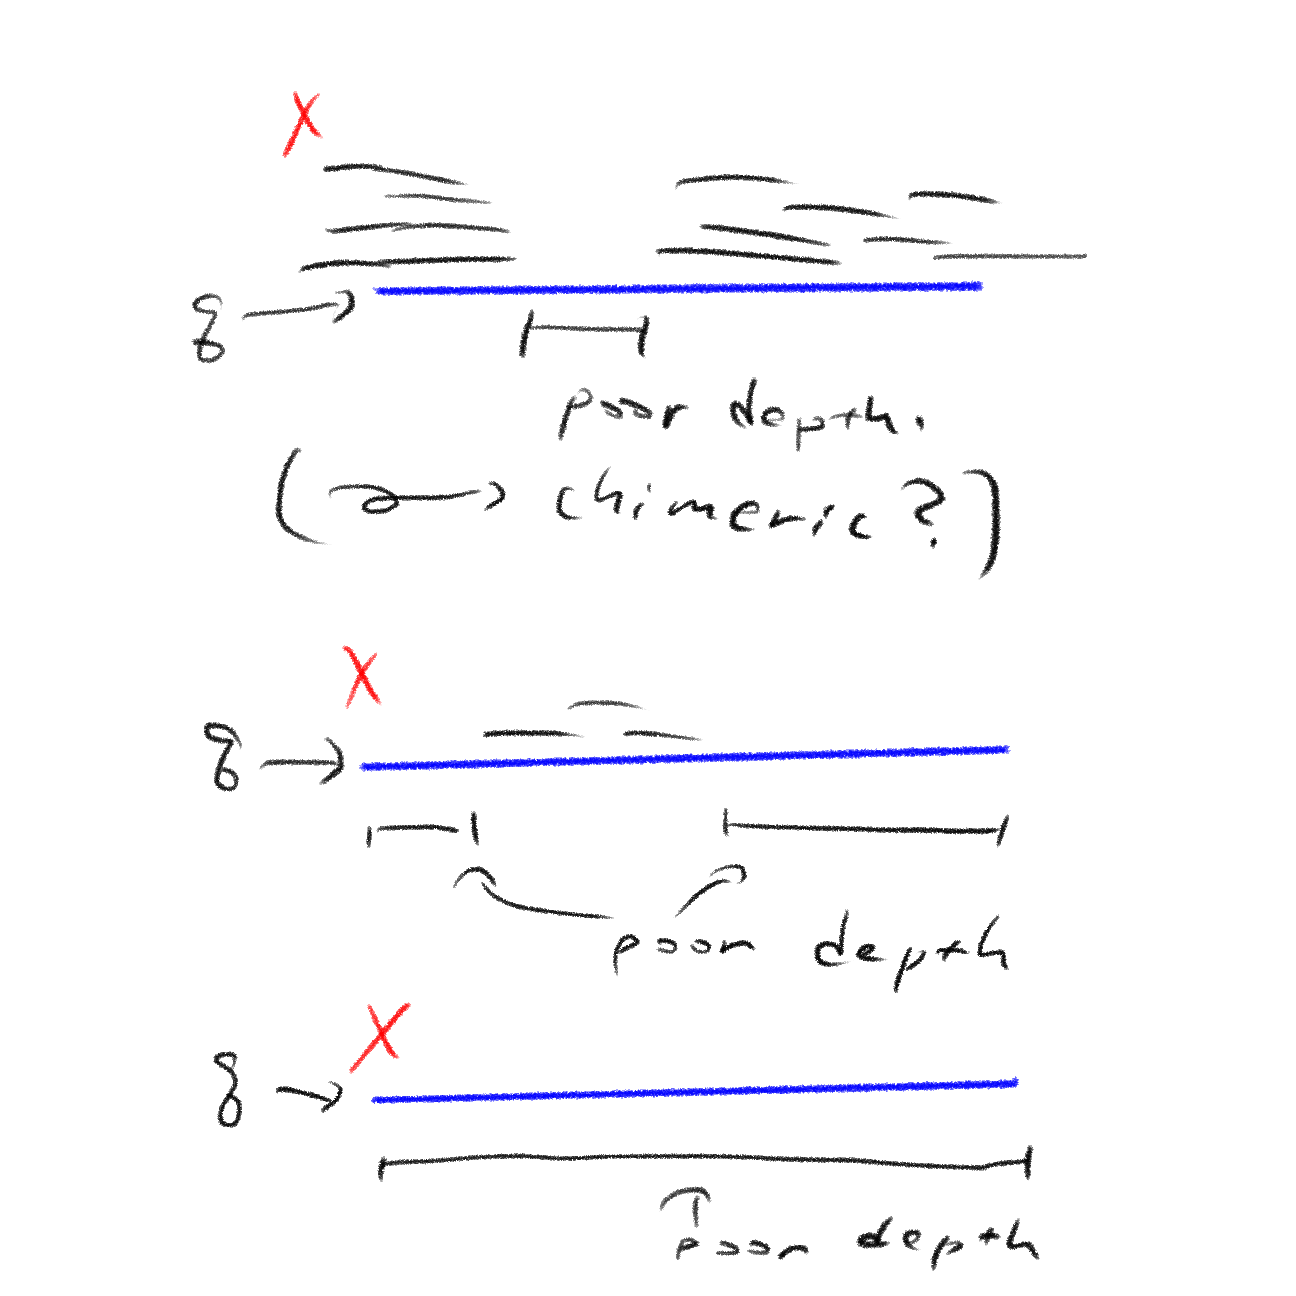 X
8 →
poor depth.
( → chimeric ? )
X
8 →
poor depth
X
8 →
poor depth